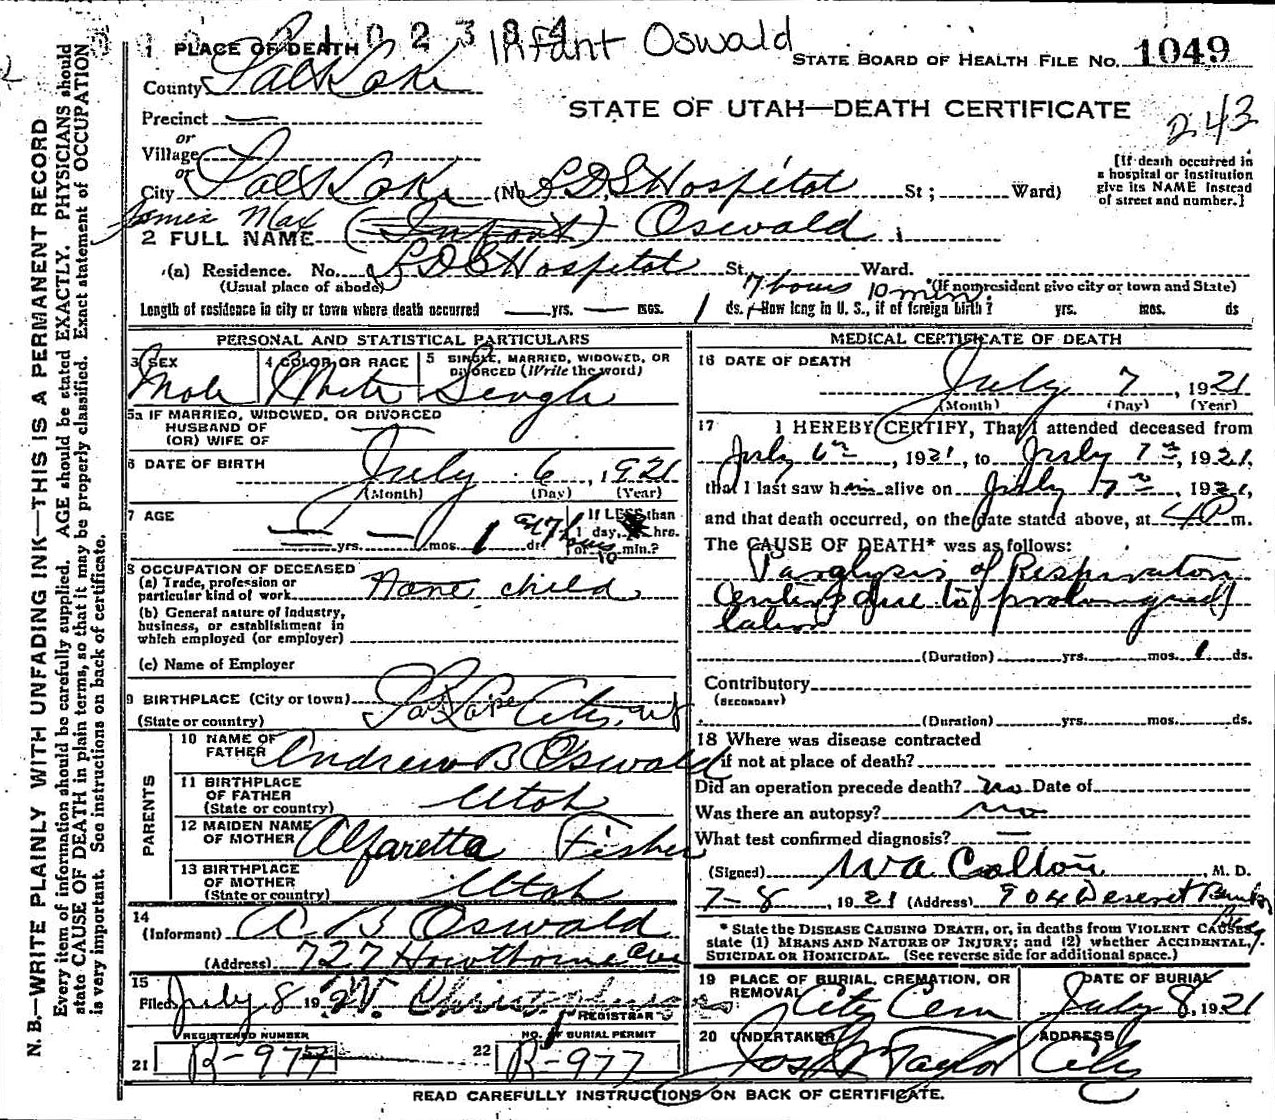 Infant Oswald
1 PLACE OF DEATH
STATE BOARD OF HEALTH FILE NO. 1049
County Salt Lake
STATE OF UTAH—DEATH CERTIFICATE
243
Precinct —
or
Village
or
City Salt Lake (No. LDS Hospital St; Ward)
[If death occurred in
a hospital or institution
give its NAME instead
of street and number.]
James Max
2 FULL NAME (Infant) Oswald
(a) Residence. No. LDS Hospital St. Ward.
(Usual place of abode) 7 hours 10 min. (If nonresident give city or town and State)
Length of residence in city or town where death occurred — yrs. — mos. 1 ds. How long in U. S., if of foreign birth? yrs. mos. ds
PERSONAL AND STATISTICAL PARTICULARS
3 SEX Male
4 COLOR OR RACE White
5 SINGLE, MARRIED, WIDOWED, OR
DIVORCED (Write the word) Single
5a IF MARRIED, WIDOWED, OR DIVORCED
HUSBAND OF
(OR) WIFE OF
6 DATE OF BIRTH July 6, 1921
(Month) (Day) (Year)
7 AGE — yrs. — mos. 1 ds
If LESS than
1 day, hrs.
or 10 min.?
8 OCCUPATION OF DECEASED
(a) Trade, profession or
particular kind of work None child
(b) General nature of industry,
business, or establishment in
which employed (or employer)
(c) Name of Employer
9 BIRTHPLACE (City or town) Salt Lake City, Ut
(State or country)
PARENTS
10 NAME OF
FATHER Andrew B Oswald
11 BIRTHPLACE
OF FATHER
(State or country) Utah
12 MAIDEN NAME
OF MOTHER Alfaretta Fisher
13 BIRTHPLACE
OF MOTHER
(State or country) Utah
14
(Informant) A B Oswald
(Address) 727 Hawthorne Ave
15
Filed July 8 19 21
REGISTRAR
REGISTERED NUMBER
21 B-977
NO. OF BURIAL PERMIT
22 B-977
MEDICAL CERTIFICATE OF DEATH
16 DATE OF DEATH July 7, 1921
(Month) (Day) (Year)
17 I HEREBY CERTIFY, That I attended deceased from
July 6th, 1921, to July 7th, 1921,
that I last saw him alive on July 7th, 1921,
and that death occurred, on the date stated above, at 4 P m.
The CAUSE OF DEATH* was as follows:
Paralysis of Respiratory
Center due to prolonged
labor
(Duration) yrs. mos. 1 ds.
Contributory
(SECONDARY)
(Duration) yrs. mos. ds.
18 Where was disease contracted
if not at place of death?
Did an operation precede death? no Date of
Was there an autopsy? no
What test confirmed diagnosis? —
(Signed) W A Calton M. D.
7-8, 1921 (Address) 904 Deseret Bank
Bldg.
* State the DISEASE CAUSING DEATH, or, in deaths from VIOLENT CAUSES,
state (1) MEANS AND NATURE OF INJURY; and (2) whether ACCIDENTAL,
SUICIDAL OR HOMICIDAL. (See reverse side for additional space.)
19 PLACE OF BURIAL, CREMATION, OR
REMOVAL City Cem
DATE OF BURIAL
July 8, 1921
20 UNDERTAKER
Jos Wm Taylor
ADDRESS
City
READ CAREFULLY INSTRUCTIONS ON BACK OF CERTIFICATE.
N. B.—WRITE PLAINLY WITH UNFADING INK—THIS IS A PERMANENT RECORD
Every item of information should be carefully supplied. AGE should be stated EXACTLY. PHYSICIANS should
state CAUSE OF DEATH in plain terms, so that it may be properly classified. Exact statement of OCCUPATION
is very important. See instructions on back of certificate.